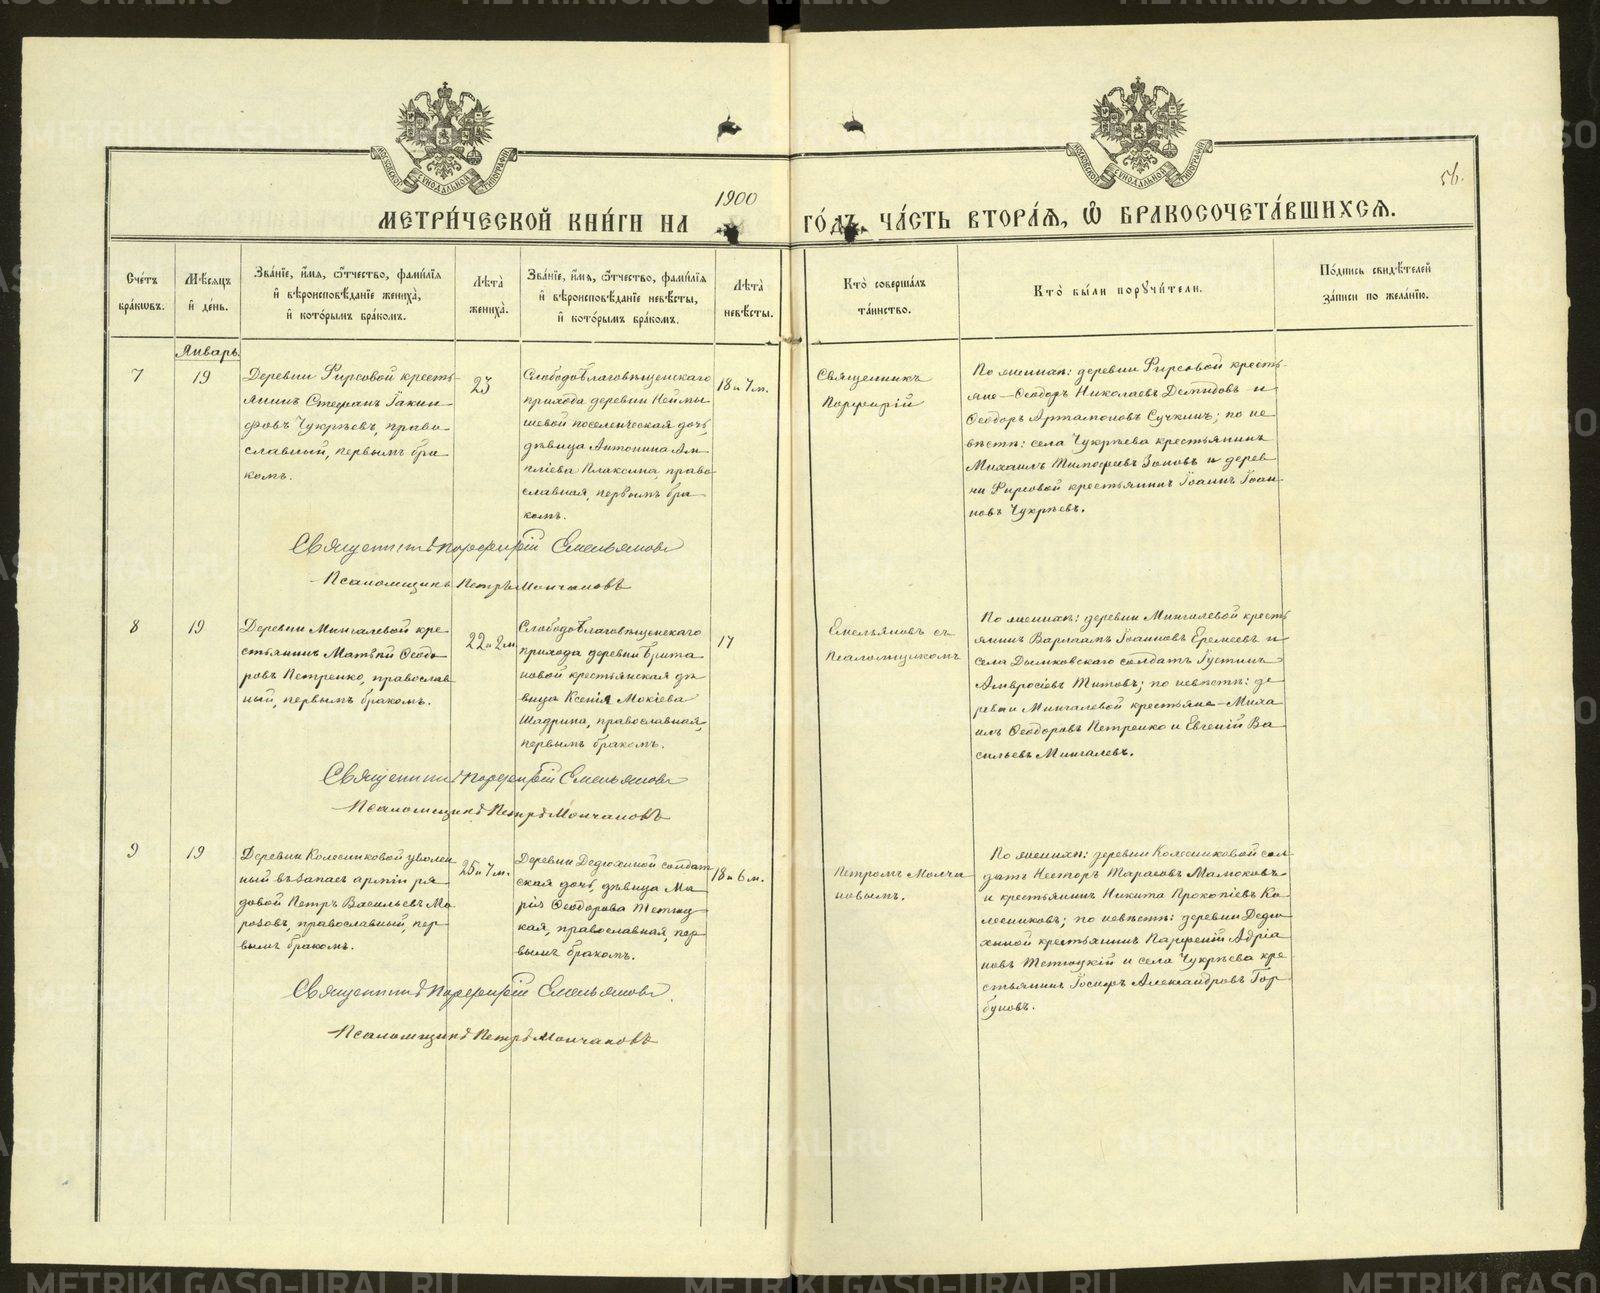 56.
1900
МЕТРИ́ЧЕСКОЙ КНИ́ГИ НА ГО́ДЪ, ЧА́СТЬ ВТОРА́Я, Ѡ҆ БРАКОСОЧЕТА́ВШИХСЯ.
Сче́тъ бра́кѡвъ.
Мѣ́сяцъ и҆ де́нь.
Зва́нїе, и҆́мя, ѻ҆́тчество, фами́лїя и҆ вѣроисповѣ́данїе жениха̀, и҆ кото́рымъ бра́комъ.
Лѣ́та жениха̀.
Зва́нїе, и҆́мя, ѻ҆́тчество, фами́лїя и҆ вѣроисповѣ́данїе невѣ́сты, и҆ кото́рымъ бра́комъ.
Лѣ́та невѣ́сты.
Кто̀ соверша́лъ та́инство.
Кто̀ бы́ли порꙋчи́тели.
По́дпись свидѣ́телей за́писи по жела́нїю.
Январь.
7
19
Деревни Фирсовой кресть-
янинъ Стефанъ Іакин-
ѳовъ Чукрѣевъ, право-
славный, первымъ бра-
комъ.
23
Слободо Благовѣщенскаго
прихода деревни Неймы-
шевой поселенческая дочь,
дѣвица Антонина Ам-
пліева Плаксина, право-
славная, первымъ бра-
комъ.
18 и 7 м.
Священникъ
Порфирій
По женихѣ: деревни Фирсовой кресть-
яне – Ѳеодоръ Николаевъ Демидовъ и
Ѳеодоръ Артамоновъ Сучкинъ; по не-
вѣстѣ: села Чукрѣева крестьянинъ
Михаилъ Тимофеевъ Зоновъ и дерев-
ни Фирсовой крестьянинъ Іоаннъ Іоан-
новъ Чукрѣевъ.
Священникъ Порфирій Емельяновъ
Псаломщикъ Петръ Молчановъ
8
19
Деревни Мингалевой кре-
стьянинъ Матвѣй Ѳеодо-
ровъ Петренко, православ-
ный, первымъ бракомъ.
22 и 2 м.
Слободо Благовѣщенскаго
прихода деревни Брита-
новой крестьянская дѣ-
вица Ксенія Мокіева
Шадрина, православная,
первымъ бракомъ.
17
Емельяновъ съ
Псаломщикомъ
По женихѣ: деревни Мингалевой кресть-
янинъ Варлаамъ Іоанновъ Еремеевъ и
села Дымковскаго солдатъ Іустинъ
Амвросіевъ Титовъ; по невѣстѣ: де-
ревни Мингалевой крестьяне – Миха-
илъ Ѳеодоровъ Петренко и Евгеній Ва-
сильевъ Мингалевъ.
Священникъ Порфирій Емельяновъ
Псаломщикъ Петръ Молчановъ
9
19
Деревни Колесниковой уволен-
ный въ запасъ арміи ря-
довой Петръ Васильевъ Мо-
розовъ, православный, пер-
вымъ бракомъ.
25 и 7 м.
Деревни Дедюхиной солдат-
ская дочь, дѣвица Ма-
рія Ѳеодорова Тетюц-
кая, православная, пер-
вымъ бракомъ.
18 и 6 м.
Петромъ Молча-
новымъ.
По женихѣ: деревни Колесниковой сол-
датъ Несторъ Тарасовъ Мамоковъ
и крестьянинъ Никита Прокопіевъ Ко-
лесниковъ; по невѣстѣ: деревни Дедю-
хиной крестьянинъ Парѳеній Адріа-
новъ Тетюцкій и села Чукрѣева кре-
стьянинъ Іосифъ Александровъ Гор-
буновъ.
Священникъ Порфирій Емельяновъ.
Псаломщикъ Петръ Молчановъ
METRIKI.GASO-URAL.RU